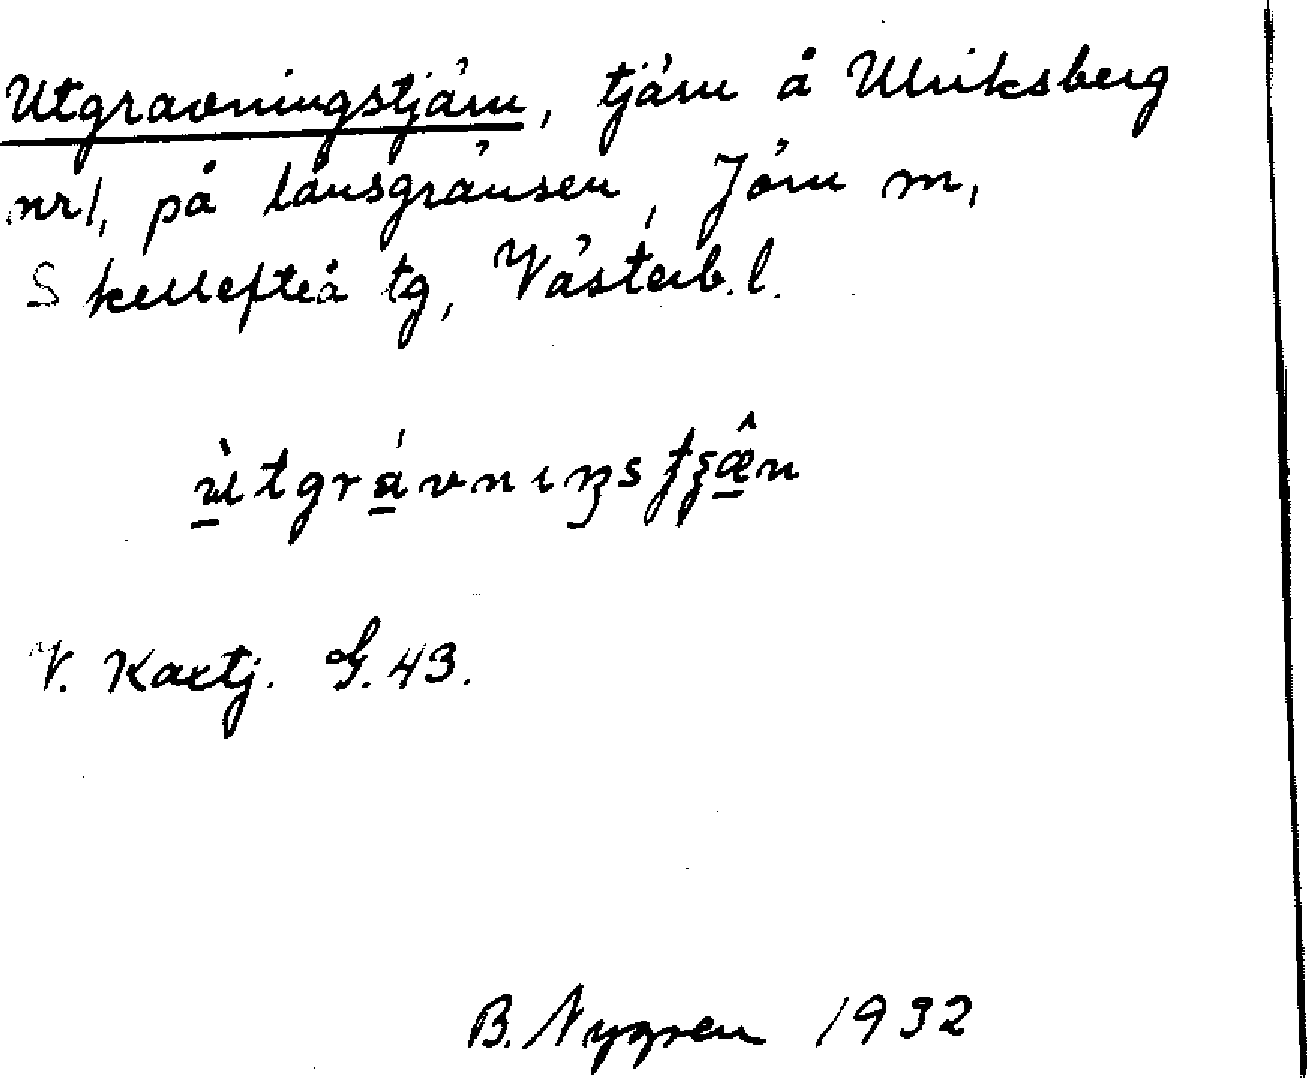 Utgravningstjärn, tjärn å Ulriksberg
nr 1, på länsgränsen, Jörn sn,
Skellefteå tg, Västerb. l.
ùtgrávnıŋstʃæ̂n
V. Kartj. G. 43.
B. Nygren 1932